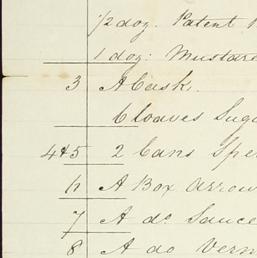 1/2 doz. Patent
1 doz: Mustard
3 A Cask.
6 loaves Sug
4&5 2 Cans Spe
6 A Box Arrow
7 A do Sauce
8 A do Ver